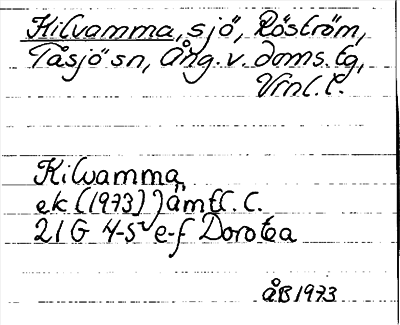 Kilvamma, sjö, Röström,
Tåsjö sn, Ång. v. doms. tg,
Vrnl. l.
Kilvamma
ek (1973) Jämtl. C.
21G 4-5 e-f Dorotea
åB 1973